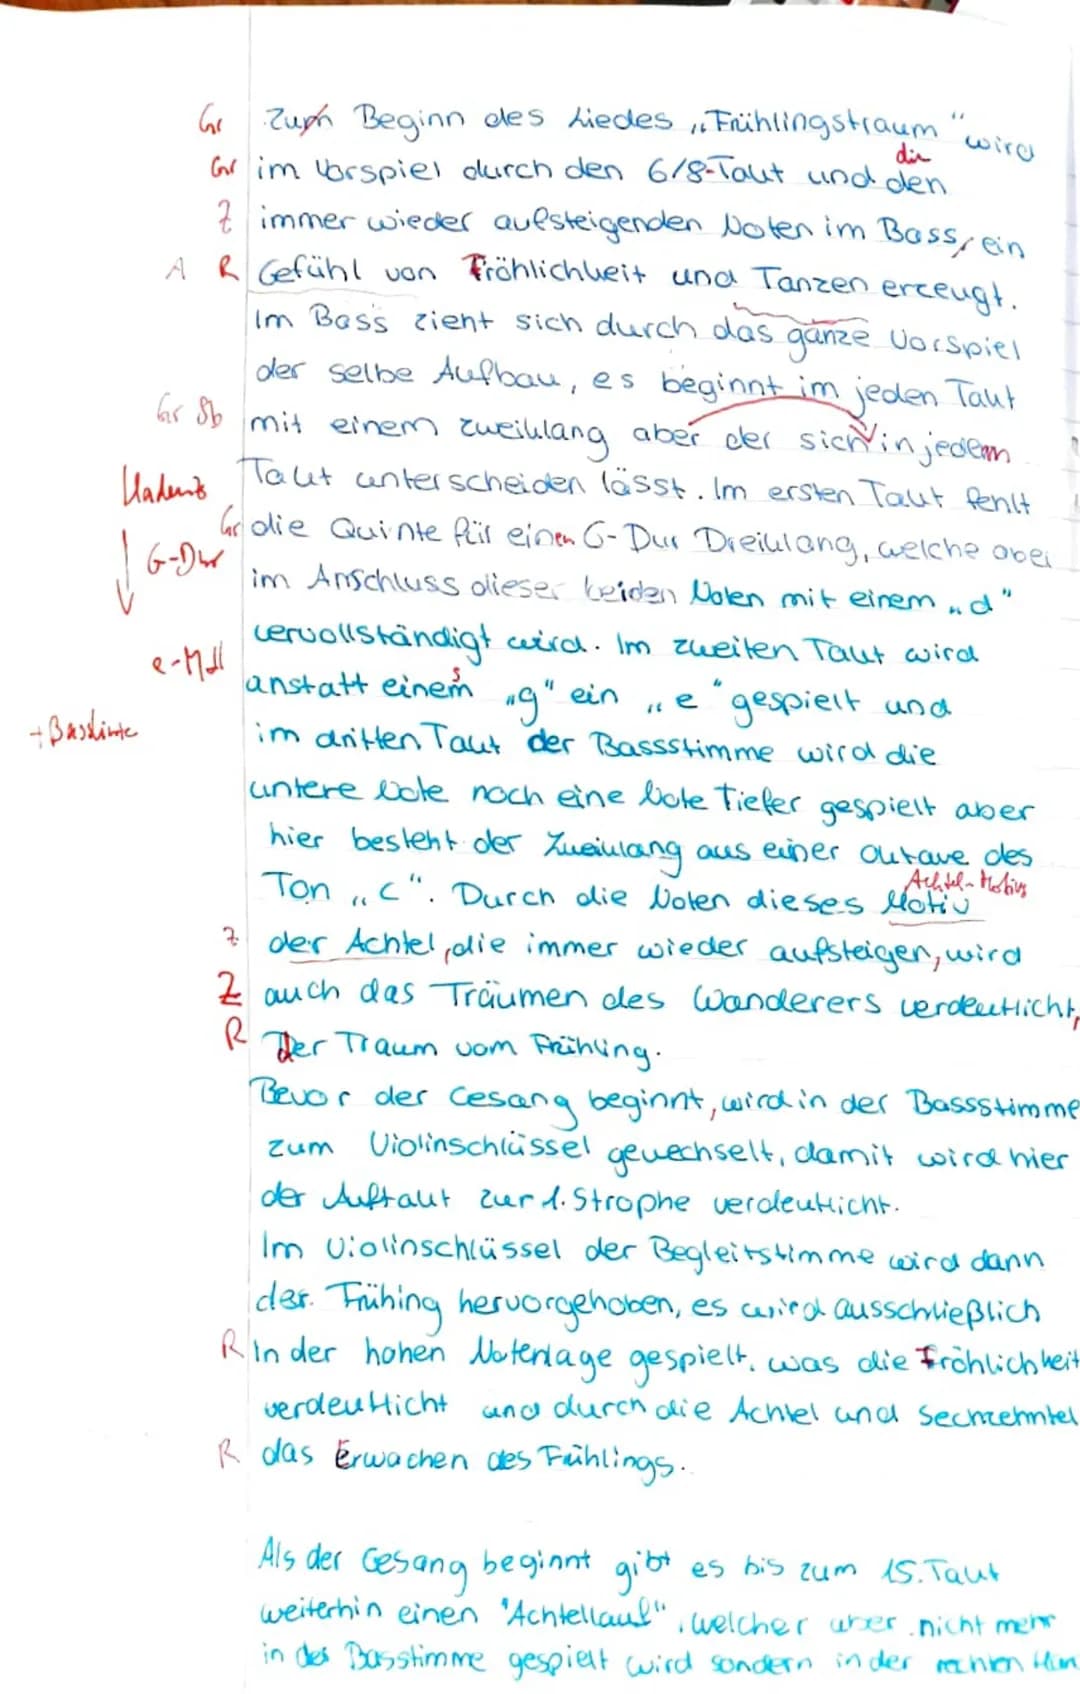 Gr Zum Beginn des Liedes „Frühlingstraum" wird
die
Gr im Vorspiel durch den 6/8-Takt und den
Z immer wieder aufsteigenden Noten im Bass, ein
A R Gefühl von Fröhlichkeit und Tanzen erzeugt.
Im Bass zieht sich durch das ganze Vorspiel
der selbe Aufbau, es beginnt im jeden Takt
Gr Sb mit einem zweiklang aber der sich in jedem
Kadenz Takt unterscheiden lässt. Im ersten Takt fehlt
Gr die Quinte für einen G-Dur Dreiklang, welche aber
G-Dur
im Anschluss dieser beiden Noten mit einem „d"
vervollständigt wird. Im zweiten Takt wird
e-Moll
s
anstatt einem „g" ein „e" gespielt und
+Basslinie
im dritten Takt der Bassstimme wird die
untere Note noch eine Note Tiefer gespielt aber
hier besteht der Zweiklang aus einer Oktave des
Achtel-Motivs
Ton „c". Durch die Noten dieses Motiv
Z der Achtel, die immer wieder aufsteigen, wird
Z auch das Träumen des Wanderers verdeutlicht,
R Der Traum vom Frühling.
Bevor der Gesang beginnt, wird in der Bassstimme
zum Violinschlüssel gewechselt, damit wird hier
der Auftakt zur 1. Strophe verdeutlicht.
Im Violinschlüssel der Begleitstimme wird dann
der Frühing hervorgehoben, es wird ausschließlich
R In der hohen Notenlage gespielt, was die Fröhlichkeit
verdeutlicht und durch die Achtel und Sechzehntel
R das Erwachen des Frühlings.
Als der Gesang beginnt gibt es bis zum 15. Takt
weiterhin einen "Achtellauf", welcher aber nicht mehr
in der Basstimme gespielt wird sondern in der rechten